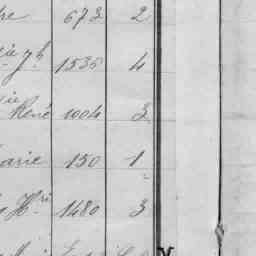 re 673 2
Jh 1535 4
René 1004 3
arie 150 1
Hri 1480 3